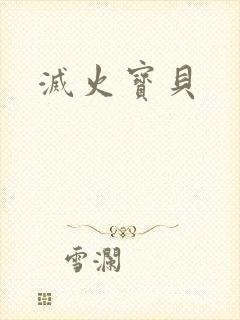 滅火寶貝
雪瀾